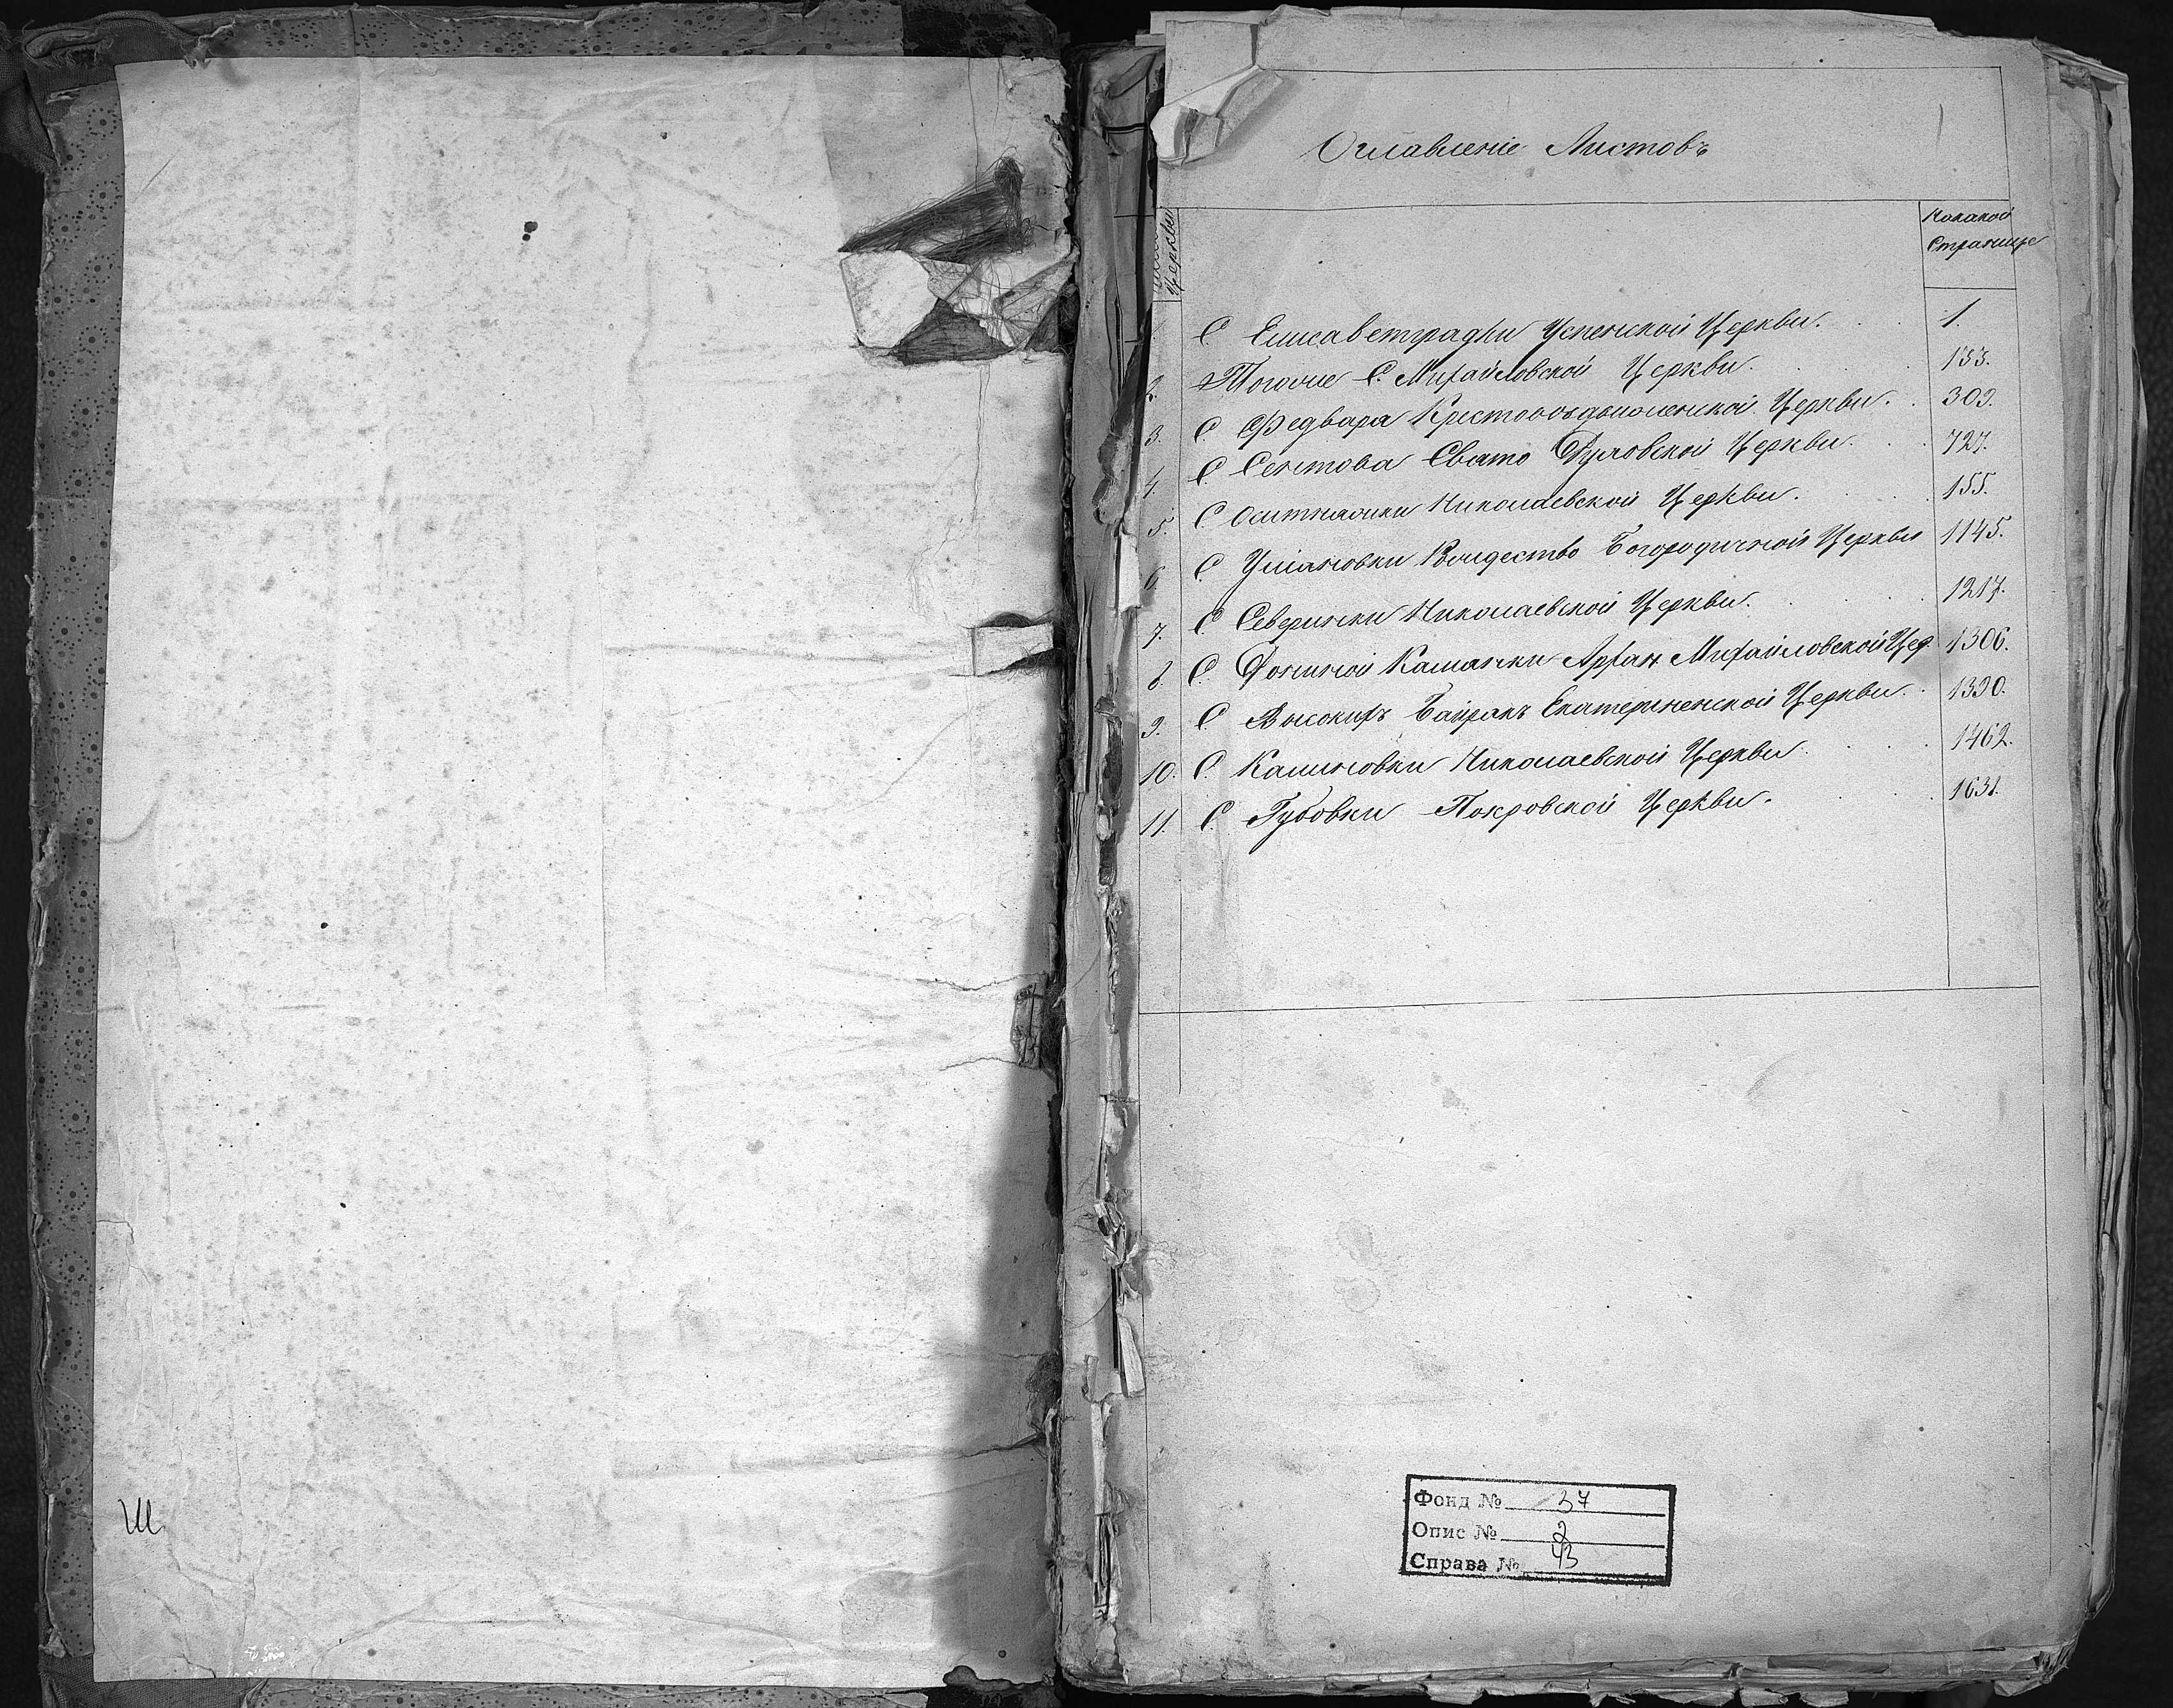 Оглавленіе Листовъ
Церкви
На какой
Странице
С Елисаветградки Успенской Церкви. 1.
2. Тогоже С. Михайловской Церкви. 153.
3. С Федвара Крестовоздвиженской Церкви. 309.
4. С Сентова Свято Духовской Церкви. 727.
5. С Оситняжки Николаевской Церкви. 155.
6. С Ульяновки Рождество Богородичной Церкви 1145.
7. С Северинки Николаевской Церкви. 1217.
8. С. Дониной Каманки Архан Михайловской Цер. 1306.
9. С. Высокихъ Байракъ Екатериненской Церкви. 1390.
10. С. Калиновки Николаевской Церкви 1462.
11. С. Губовки Покровской Церкви. 1631.
Ш
Фонд № 37
Опис № 2
Справа № 43